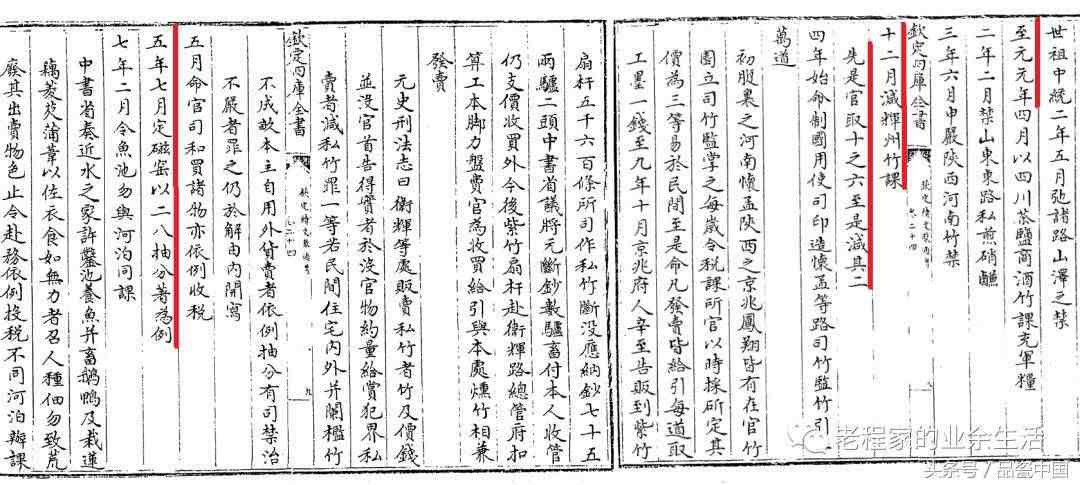 世祖中統二年五月弛諸路山澤之禁
至元元年四月以四川茶鹽商酒竹課充軍糧
二年二月禁山東東路私煎硝鹻
三年六月申嚴陝西河南竹禁
欽定四庫全書
欽定續文獻通考
卷二十四
八
十二月減輝州竹課
先是官取十之六至是減其二
四年始命制國用使司印造懷孟等路司竹監竹引
萬道
初腹裏之河南懷孟陝西之京兆鳳翔皆有在官竹
園立司竹監掌之每歲令税課所官以時採斫定其
價為三等易於民間至是命凡發賣皆給引每道取
工墨一錢至九年十月京兆府人辛至告販到紫竹
扇杆五千六百條所司作私竹斷沒應納鈔七十五
兩驢二頭中書省議將元斷鈔數驢畜付本人收管
仍支價收買外今後紫竹扇杆赴衛輝路總管府扣
算工本脚力盤費官為收買給引與本處燻竹相兼
發賣
元史刑法志曰衛輝等處販賣私竹者竹及價錢
並沒官首告得實者於沒官物約量給賞犯界私
賣者減私竹罪一等若民間住宅内外并闌檻竹
欽定四庫全書
欽定續文獻通考
卷二十四
九
不成畝本主自用外貨賣者依例抽分有司禁治
不嚴者罪之仍於解由内開寫
五月命官司和買諸物亦依例收税
五年七月定磁窑以二八抽分著為例
七年二月令魚池勿與河泊同課
中書省奏近水之家許鑿池養魚并畜鵝鴨及栽蓮
藕菱芡蒲葦以佐衣食如無力者召人種佃勿致荒
廢其出賣物色止令赴務依例投税不同河泊辦課
老程家的业余生活
头条号/品瓷中国